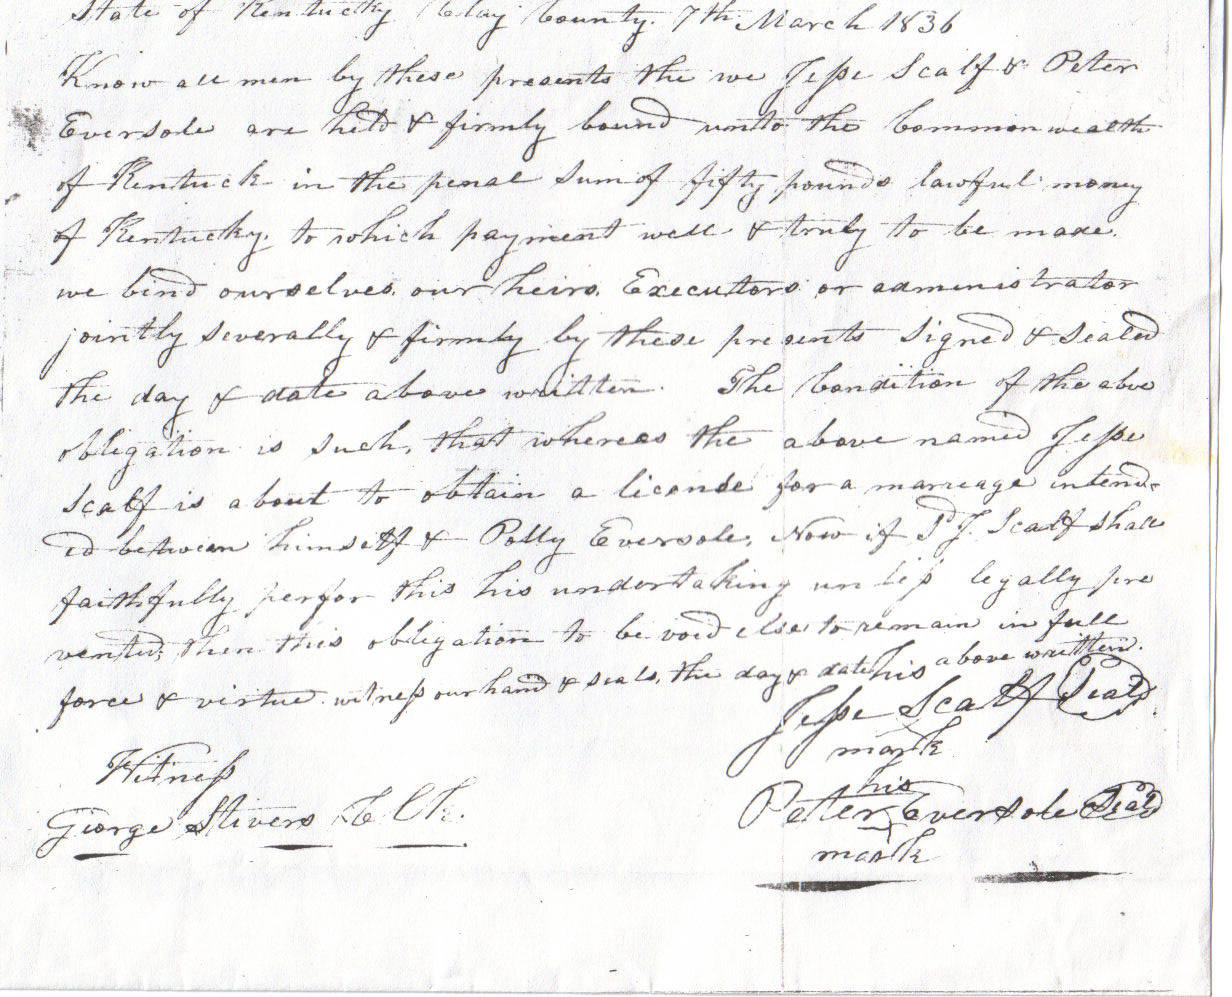 State of Kentucky Clay County. 7th March 1836
Know all men by these presents the we Jesse Scalf & Peter
Eversole are held & firmly bound unto the Commonwealth
of Kentuck in the penal sum of fifty pounds lawful money
of Kentucky. to which payment well & truly to be made.
we bind ourselves, our heirs, Executors or administrator
jointly severally & firmly by these presents signed & sealed
the day & date above written. The Condition of the abve
obligation is such, that whereas the above named Jesse
Scalf is about to obtain a license for a marriage intend-
ed between himself & Polly Eversole, Now if Sd J. Scalf shall
faithfully perfor this his undertaking unless legally pre
vented; then this obligation to be void else to remain in full
force & virtue. witness our hand & seals, the day & date above written.
his
Jesse Scalf Seal
mark
Witness
his
George Stivers Clk.
Peter Eversole Seal
mark